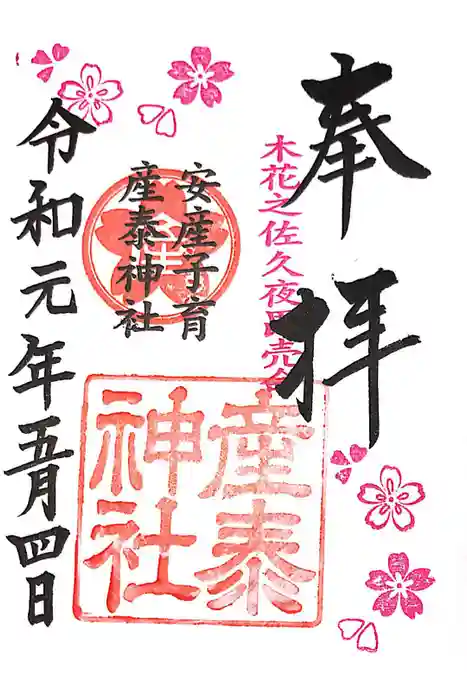 奉拝
木花之佐久夜毘売命
安産子育
産泰神社
産泰
神社
令和元年五月四日